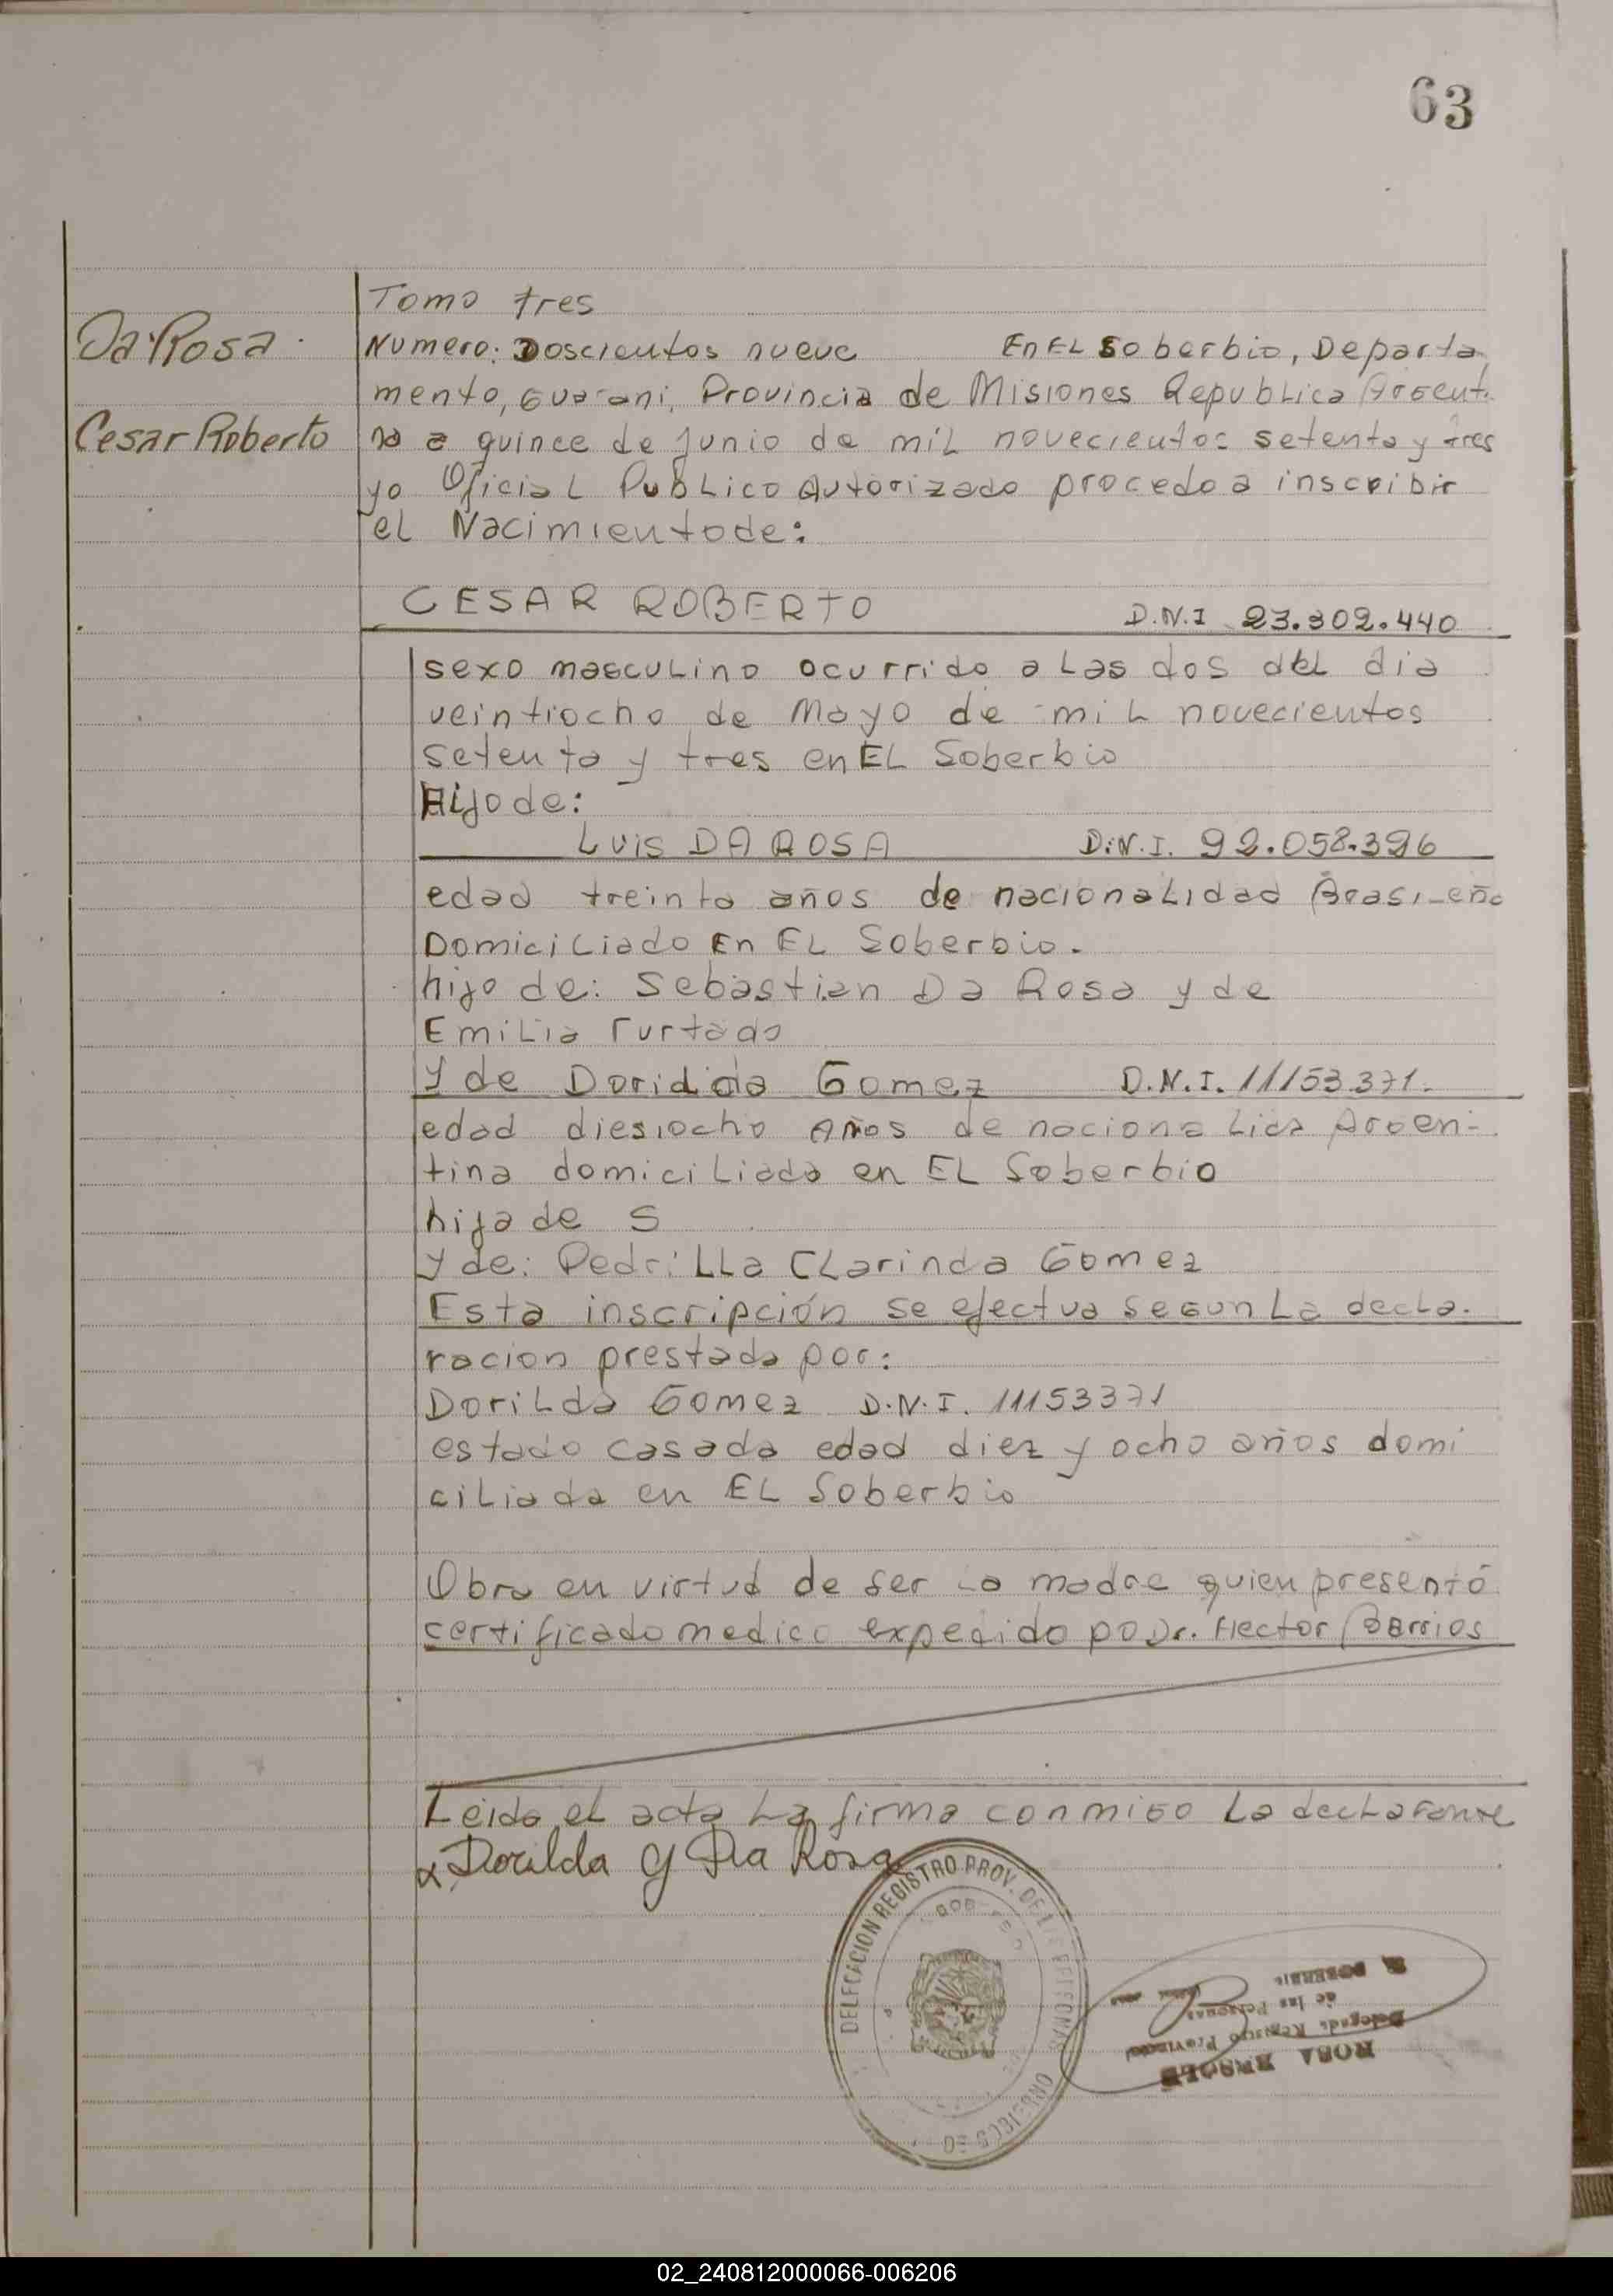 63
Tomo tres
Da Rosa
Numero: Doscientos nueve En EL Soberbio, Departa
mento, Guarani, Provincia de Misiones Republica Argent.
Cesar Roberto
na a quince de junio de mil novecientos setenta y tres
yo Oficial Publico Autorizado procedo a inscribir
el Nacimiento de:
CESAR ROBERTO D.N.I 23.302.440
sexo masculino ocurrido a las dos del dia
veintiocho de Mayo de mil novecientos
setenta y tres en EL Soberbio
Hijo de:
Luis DA ROSA D.N.I. 92.058.396
edad treinta años de nacionalidad Brasileña
Domiciliado En EL Soberbio.
hijo de: Sebastian Da Rosa y de
Emilia Furtado
y de Doridda Gomez D.N.I. 11153.371.
edad diesiocho Años de nacionalida Argen-
tina domiciliada en EL Soberbio
hija de S
y de: Pedrilla Clarinda Gomez
Esta inscripción se efectua segun La decla.
racion prestada por:
Dorilda Gomez D.N.I. 11153371
estado casada edad diez y ocho años domi
ciliada en EL Soberbio
Obra en virtud de ser la madre quien presentó
certificado medico expedido po Dr. Hector Barrios
Leida el acta La firma conmigo La declarante
x Dorilda G Da Rosa
DELEGACION REGISTRO PROV. DE
EL SOBERBIO
de las Personas
Delegada Registro Provincial
ROSA
02_240812000066-006206